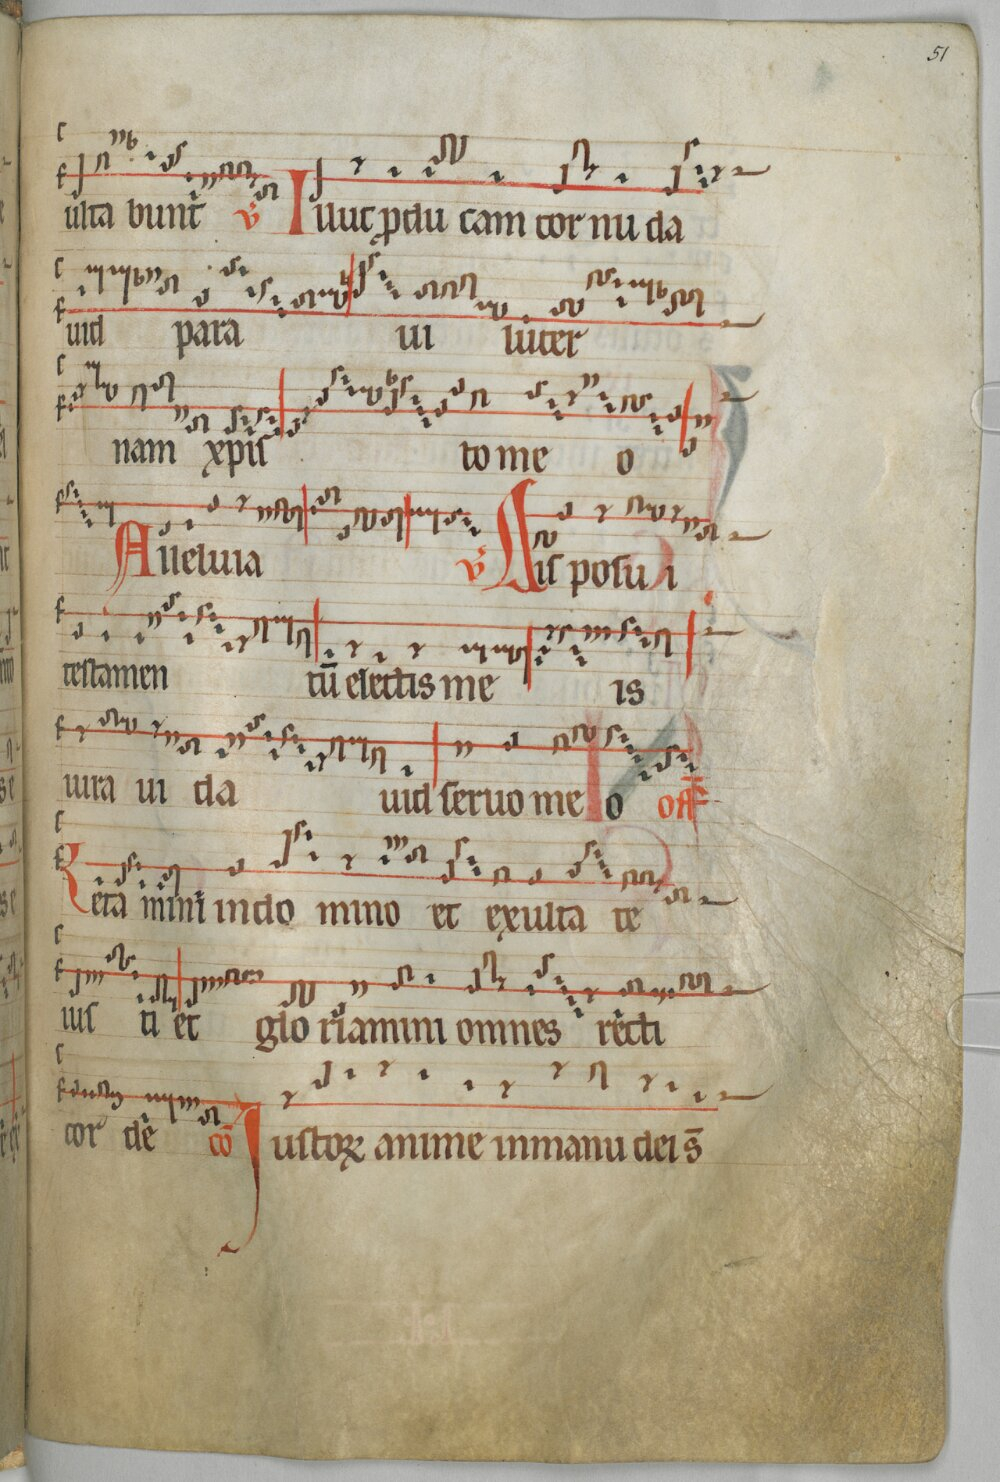 51
ulta bunt v̄ Illuc ꝓdu cam cor nu da
uid para ui lucer
nam xpis to me o
Alleluia v̄ Dis posu i
testamen tū electis me is
iura ui da uid seruo me o off̄
Leta mini in do mino et exulta te
ius ti et glo riamini omnes recti
cor de cō Iustoꝝ anime in manu dei s̄